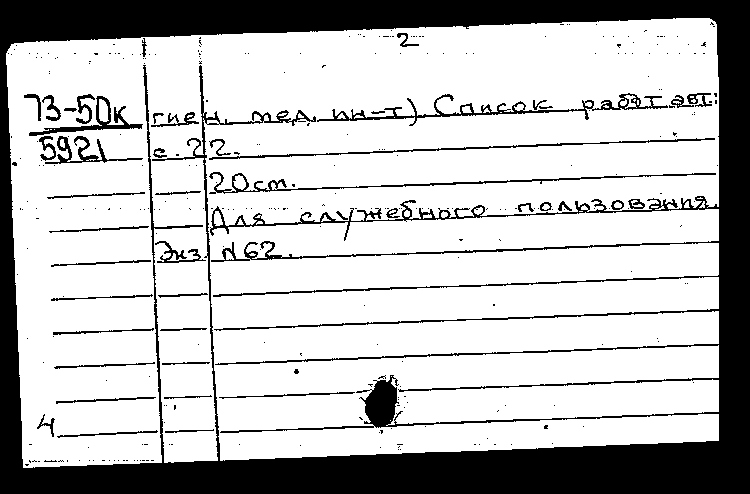 2
73-50к гиен. мед. ин-т) Список работ авт:
5921 с. 22.
20см.
Для служебного пользования.
Экз. №62.
4